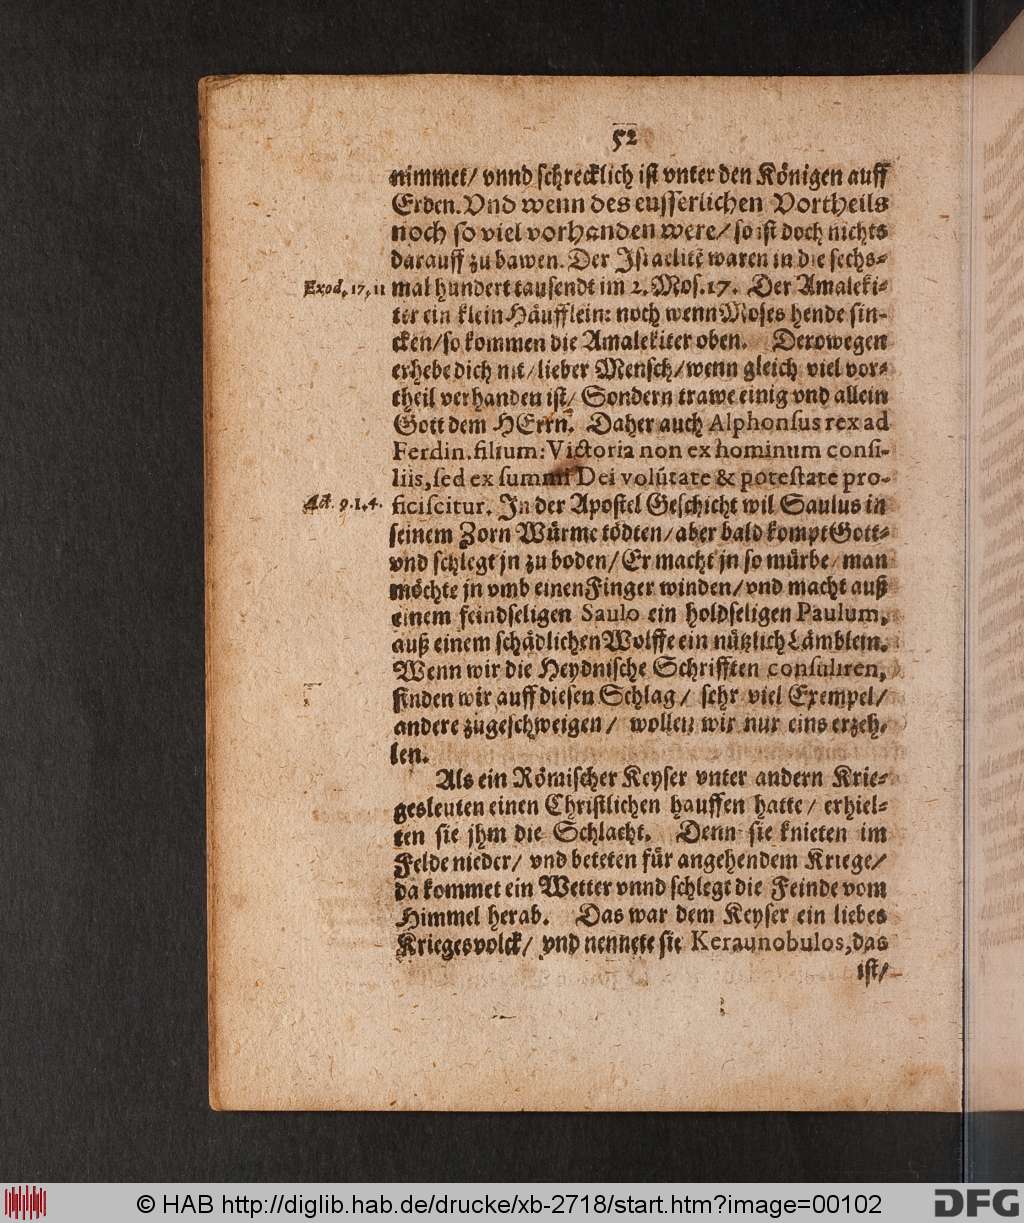 52
nimmet/ vnnd schrecklich ist vnter den Königen auff
Erden. Vnd wenn des eusserlichen Vortheils
noch so viel vorhanden were/ so ist doch nichts
darauff zu bawen. Der Israelitẽ waren in die sechs-
Exod. 17, 11
mal hundert tausendt im 2. Mos. 17. Der Amaleki-
ter ein klein Häufflein: noch wenn Moses hende sin-
cken/ so kommen die Amalekiter oben. Derowegen
erhebe dich nit/ lieber Mensch/ wenn gleich viel vor-
theil verhanden ist/ Sondern trawe einig vnd allein
Gott dem HErrn. Daher auch Alphonsus rex ad
Ferdin. filium: Victoria non ex hominum consi-
liis, sed ex summi Dei volũtate & potestate pro-
Act. 9. 1. 4.
ficiscitur. In der Apostel Geschicht wil Saulus in
seinem Zorn Würme tödten/ aber bald kompt Gott-
vnd schlegt jn zu boden/ Er macht jn so mürbe/ man
möchte jn vmb einen Finger winden/ vnd macht auß
einem feindseligen Saulo ein holdseligen Paulum,
auß einem schädlichen Wolffe ein nützlich Lämblein.
Wenn wir die Heydnische Schrifften consuliren,
finden wir auff diesen Schlag/ sehr viel Exempel/
andere zugeschweigen/ wollen wir nur eins erzeh-
len.
Als ein Römischer Keyser vnter andern Krie-
gesleuten einen Christlichen hauffen hatte/ erhiel-
ten sie jhm die Schlacht. Denn sie knieten im
Felde nieder/ vnd beteten für angehendem Kriege/
da kommet ein Wetter vnnd schlegt die Feinde vom
Himmel herab. Das war dem Keyser ein liebes
Kriegesvolck/ vnd nennete sie Keraunobulos, das
ist/
© HAB http://diglib.hab.de/drucke/xb-2718/start.htm?image=00102
DFG